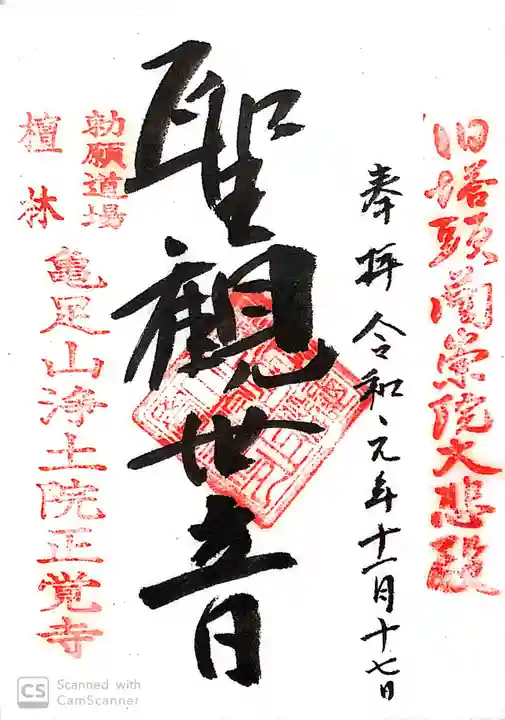 旧塔頭蘭崇院大悲殿
奉拝 令和元年十一月十七日
聖觀世音
勅願道場
檀林
亀足山浄土院正覚寺
CS Scanned with
CamScanner